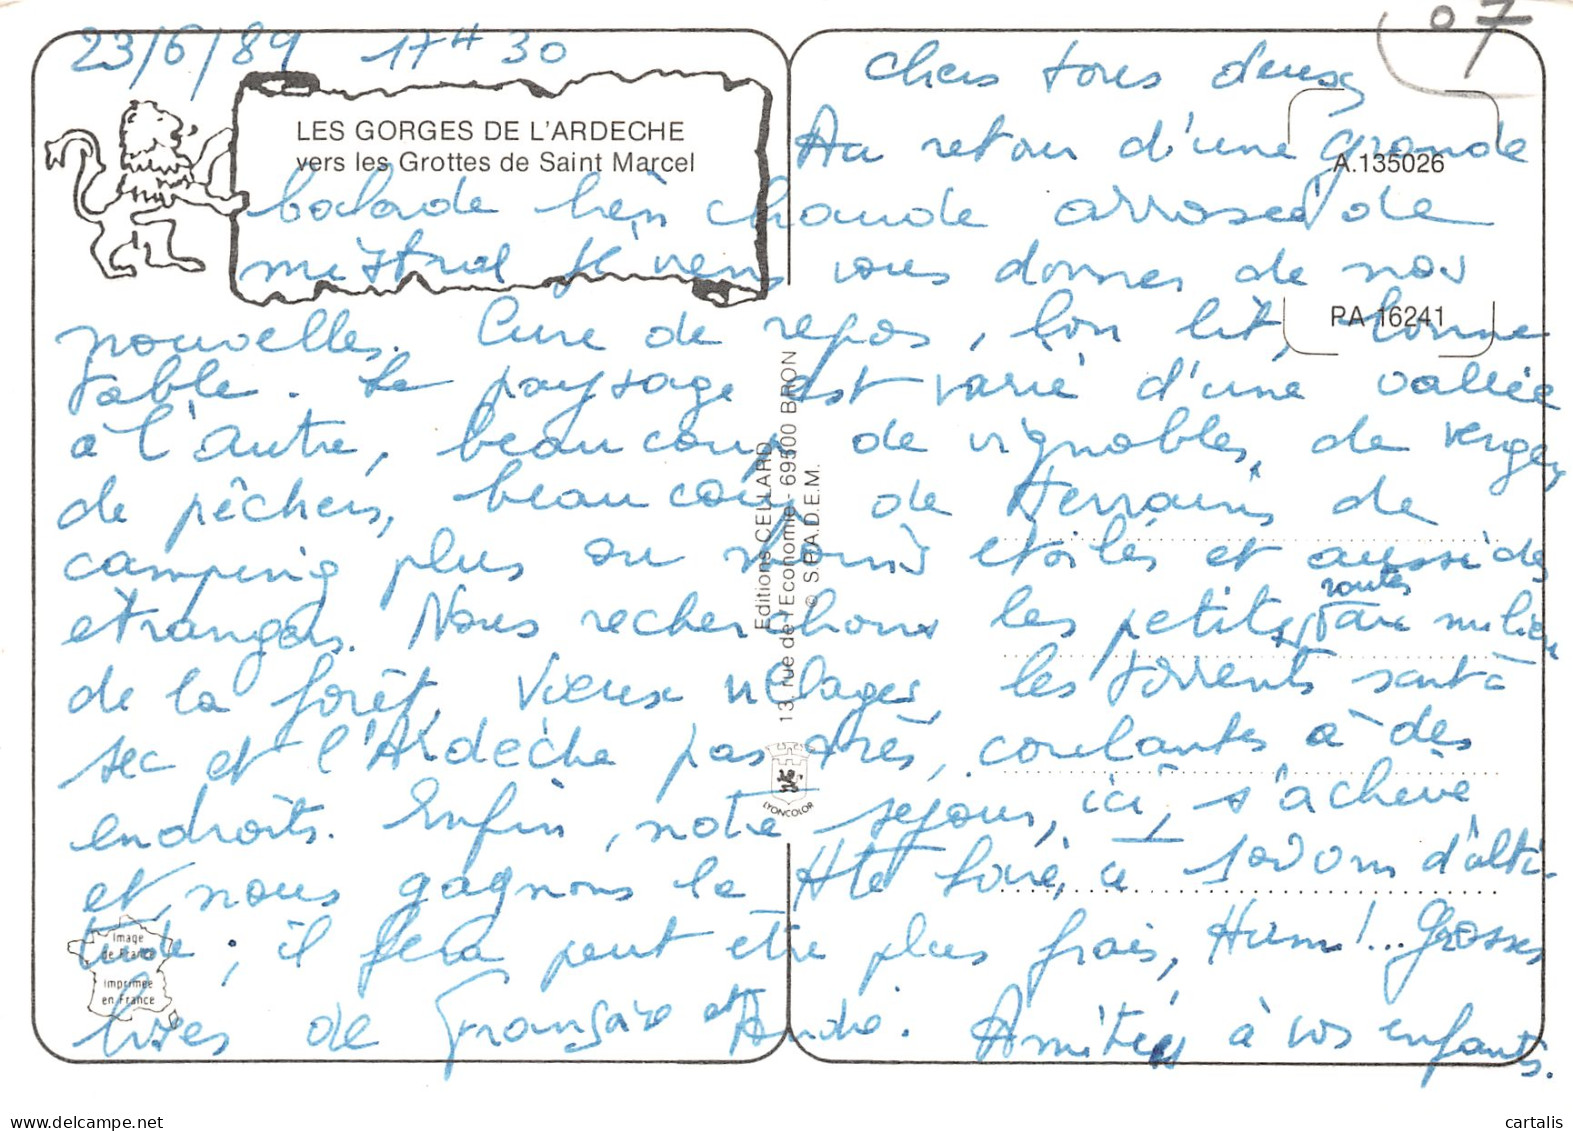 07
23/6/89 17H30
LES GORGES DE L'ARDECHE
vers les Grottes de Saint Marcel
A.135026
PA 16241
Chers tous deux
Au retour d'une grande
balade bien chaude arrosée de
mistral je viens vous donner de nos
nouvelles. Cure de repos, bon lit, bonne
table. Le paysage est varié d'une vallée
à l'autre, beaucoup de vignobles, de verger
de pêchers, beaucoup de terrains de
camping plus ou moins étoilés et aussi des
étrangers. Nous recherchons les petites routes au milieu
de la forêt, vieux villages, les torrents sont à
sec et l'Ardèche pas très, coulantes à des
endroits. Enfin, notre séjour, ici, s'achève
et nous gagnons la Hte Loire, à 1000m d'alti-
tude; il fera peut être plus frais, Hum!... Grosses
bises de Françoise et André. Amitiés à vos enfants.
Editions CELLARD
13, rue de l'Economie - 69500 BRON
© S.P.A.D.E.M.
LYONCOLOR
Image
de France
Imprimée
en France
cartalis
www.delcampe.net